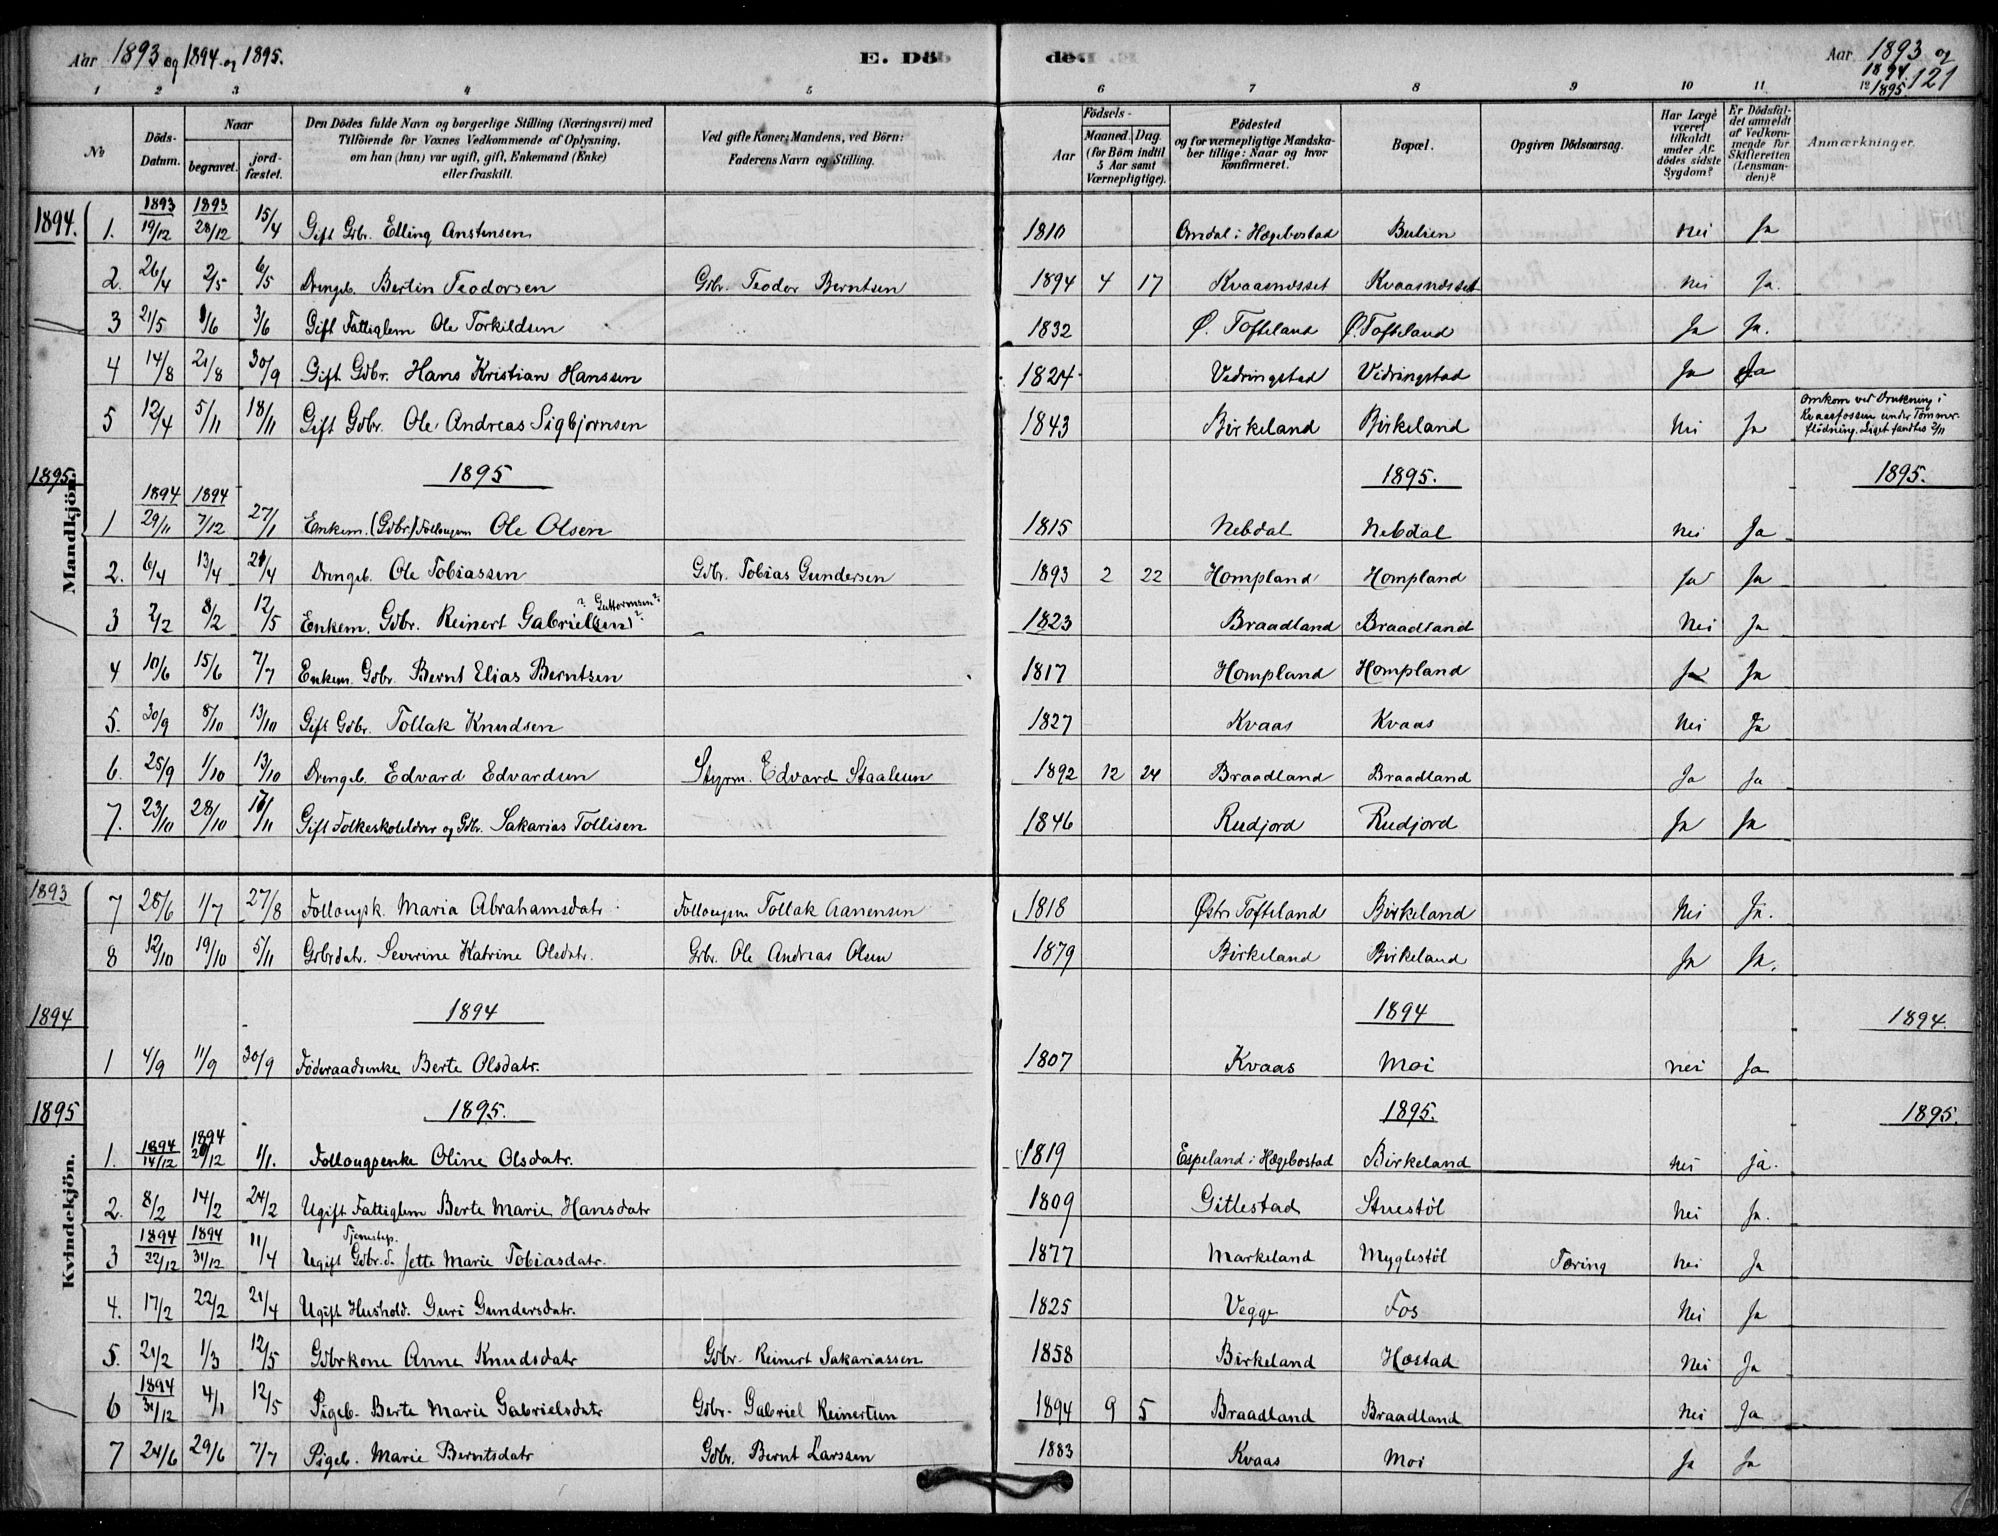 Aar 1893 og 1894 og 1895. E. Dö de. Aar 1893 og 1894 1895. 121
1 2 3 4 5 6 7 8 9 10 11 12
№ Döds-Datum. Naar begravet. jordfæstet. Den Dödes fulde Navn og borgerlige Stilling (Næringsvei) med Tilföiende for Voxnes Vedkommende af Oplysning, om han (hun) var ugift, gift, Enkemand (Enke) eller fraskilt. Ved gifte Koner: Mandens, ved Börn: Faderens Navn og Stilling. Födsels- Aar Maaned. Dag. (for Börn indtil 5 Aar samt Værnepligtige). Födested og for værnepligtige Mandskaber tillige: Naar og hvor konfirmeret. Bopæl. Opgiven Dödsaarsag. Har Læge været tilkaldt under Afdödes sidste Sygdom? Er Dödsfaldet anmeldt af Vedkommende for Skifteretten (Lensmanden)? Anmærkninger.
Mandkjön.
1894. 1. 1893 19/12 1893 28/12 15/4 Gift Gdbr. Elling Anstensen 1810 Omdal i Hægebostad Bulien nei Ja
2. 26/4 2/5 6/5 Drengeb. Bertin Teodorsen Gdbr. Teodor Berntsen 1894 4 17 Kvaasnæsset Kvaasnæsset nei Ja.
3 21/5 1/6 3/6 Gift Fattiglem Ole Torkildsen 1832 Ø. Tofteland Ø. Tofteland Ja Ja.
4 14/8 21/8 30/9 Gift Gdbr. Hans Kristian Hanssen 1824 Vedringstad Vidringstad Ja Ja
5 12/4 5/11 18/11 Gift Gdbr. Ole Andreas Sigbjørnsen 1843 Birkeland Birkeland Nei Ja Omkom ved Drukning i Kvaasfossen under Tømmerflödning. Liget fandtes 2/11
1895. 1895 1895. 1895.
1 1894 29/11 1894 7/12 27/1 Enkem. (Gdbr.) Follougsm Ole Olsen 1815 Nebdal Nebdal nei Ja
2. 6/4 13/4 21/4 Drengeb. Ole Tobiassen Gdbr. Tobias Gundersen 1893 2 22 Hompland Hompland Ja Ja
3 2/2 8/2 12/5 Enkem. Gdbr. Reinert Gabrielsen? ? Guttormsen? 1823 Braadland Braadland Nei Ja
4 10/6 15/6 7/7 Enkem. Gdbr. Bernt Elias Berntsen 1817 Hompland Hompland Ja Ja
5. 30/9 8/10 13/10 Gift Gdbr. Tollak Knudsen 1827 Kvaas Kvaas Nei Ja
6. 25/9 1/10 13/10 Drengeb. Edvard Edvardsen Styrm. Edvard Staalesen 1892 12 24 Braadland Braadland Ja Ja
7. 23/10 28/10 /11 Gift Folkeskolelærer og Gdbr. Sakarias Tollisen 1846 Rudjord Rudjord Ja Ja
Kvindekjön.
1893 7 28/6 1/7 27/8 Follougsk. Maria Abrahamsdatr. Follougsm Tollak Aanensen 1818 Østr. Tofteland Birkeland Nei Ja.
8 12/10 19/10 5/11 Gdbrdatr. Severine Katrine Olsdatr. Gdbr. Ole Andreas Olsen 1879 Birkeland Birkeland Ja Ja.
1894 1894 1894 1894.
1 4/9 11/9 30/9 Föderaadsenke Berte Olsdatr. 1807 Kvaas Moi nei Ja
1895 1895. 1895. 1895.
1. 1894 14/12 1894 20/12 1/1. Follougsenke Oline Olsdatr. 1819 Espeland i Hægebostad Birkeland nei ja.
2. 8/2 14/2 24/2 Ugift Fattiglem Berte Marie Hansdatr 1809 Gitlestad Stuestöl Nei Ja.
3 1894 22/12 1894 31/12 11/4 Ugift Tjenestep. Gdbr.d. Jette Marie Tobiasdatr. 1877 Markeland Myglestöl Tæring nei Ja
4. 17/2 22/2 21/4 Ugift Hushold. Guri Gundersdatr. 1825 Vegge Fos Nei Ja
5. 21/2 1/3 12/5 Gdbrkone Anne Knudsdatr Gdbr. Reinert Sakariassen 1858 Birkeland Hæstad Nei Ja
6 1894 31/12 4/1 12/5 Pigeb. Berte Marie Gabrielsdatr Gdbr. Gabriel Reinertsen 1894 9 5 Braadland Braadland Nei Ja
7 24/6 29/6 7/7 Pigeb. Marie Berntsdatr Gdbr. Bernt Larssen 1883 Kvaas Moi Ja Ja